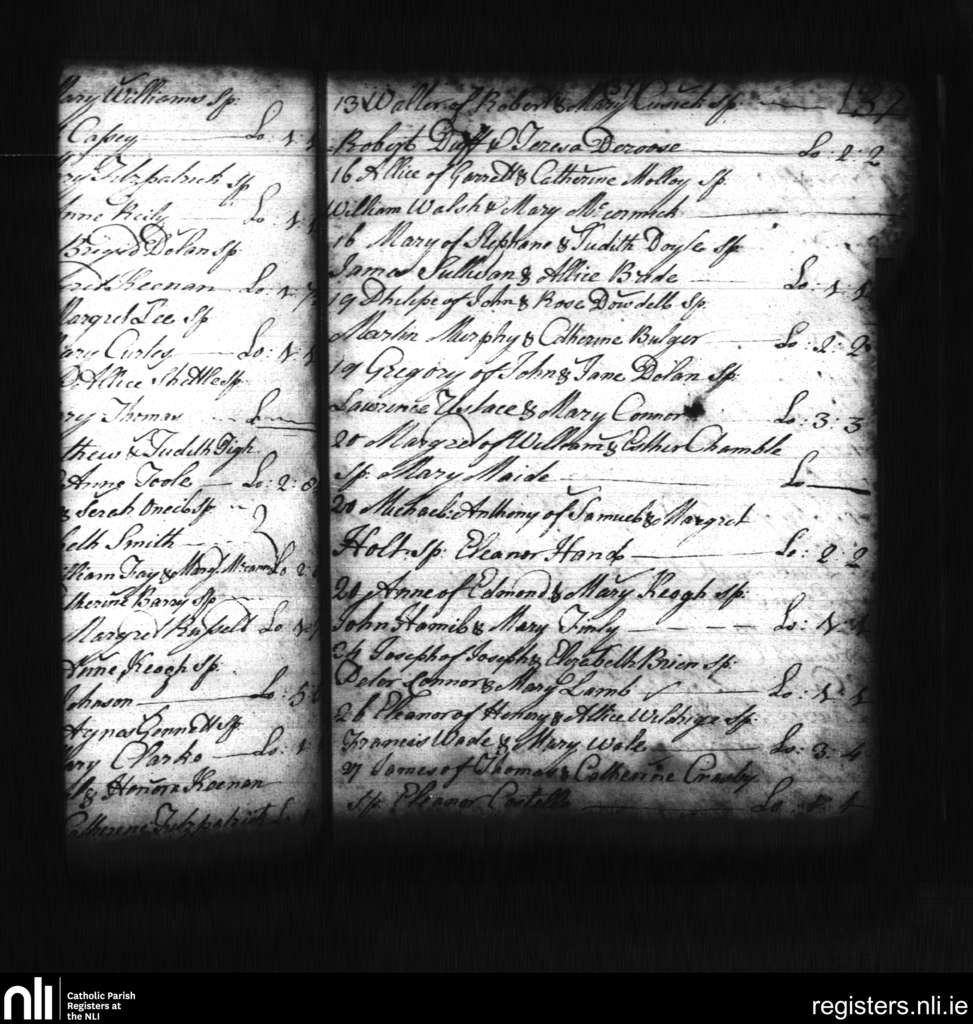 Mary Williams Sp:
Casey Lo: 1: 1
Fitzpatrick Sp
Anne Reily Lo: 1: 1
Brigid Dolan Sp
Keenan Lo: 1:
Margret Lee Sp
Mary Curley Lo: 1: 1
Allice Shettle Sp:
Thomas L
& Judith Pigh
Anne Toole Lo: 2: 8
& Serah Oneil Sp
Smith
William Fay & Mary Lo 2:
Catherine Barry Sp
Margret Russell Lo 1:
Anne Keogh Sp:
Johnson Lo: 5
Agnas Gennett Sp
Mary Clarke Lo: 1:
& Honora Keenan
Catherene Fitzpatrick
137
13 Walter of Robert & Mary Cusick Sp:
Robert Duff & Teresa Deroose Lo: 2: 2
16 Allice of Garrett & Catherine Molloy Sp:
William Walsh & Mary McCormick
16 Mary of Stephane & Judith Doyle Sp
James Sullivan & Allice Brade Lo: 1: 1
19 Philipe of John & Rose Dowdell Sp:
Martin Murphy & Catherine Bulger Lo: 2: 2
19 Gregory of John & Jane Dolan Sp:
Lawrence Ustace & Mary Connor Lo: 3: 3
20 Margret of William & Esther Chamble
Sp: Mary Maide L
20 Michael: Anthony of Samuel & Margret
Holt Sp: Eleanor Hand Lo: 2: 2
20 Anne of Edmond & Mary Keogh Sp:
John Hamil & Mary Finly Lo: 1: 1
24 Joseph of Joseph & Elizabeth Brien Sp:
Peter Connor & Mary Lamb Lo: 1: 1
26 Eleanor of Henry & Allice Sp:
Francis Wade & Mary Wale Lo: 3: 4
27 James of Thomas & Catherine Crosby
Sp: Eleanor Costello Lo: 1: 1
nli
Catholic Parish
Registers at
the NLI
registers.nli.ie